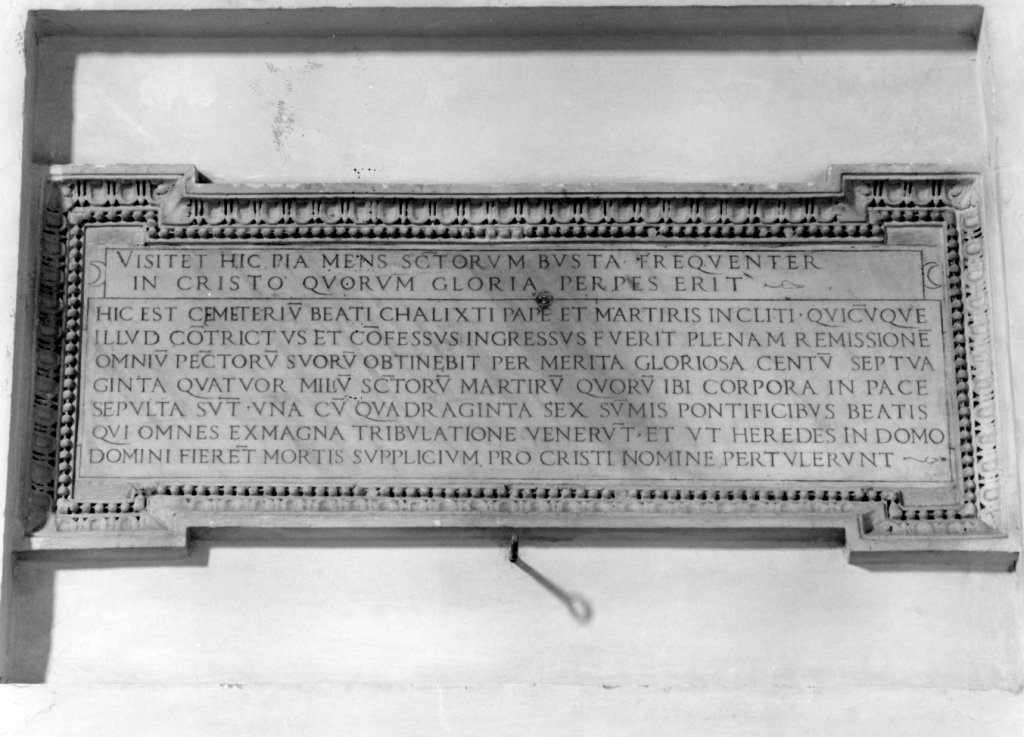 VISITET HIC PIA MENS SC̅TORVM BVSTA · FREQVENTER
IN CRISTO QVORVM GLORIA PERPES ERIT
HIC EST CEMETERIV̅ BEATI CHALIXTI PAPE ET MARTIRIS INCLITI · QVICV̅QVE
ILLVD CO̅TRICTVS ET CO̅FESSVS INGRESSVS FVERIT PLENAM REMISSIONE̅
OMNIV̅ PEC̅TORV̅ SVORV̅ OBTINEBIT PER MERITA GLORIOSA CENTV̅ SEPTVA
GINTA QVATVOR MILIV̅ SC̅TORV̅ MARTIRV̅ QVORV̅ IBI CORPORA IN PACE
SEPVLTA SV̅T · VNA CV̅ QVADRAGINTA SEX SV̅MIS PONTIFICIBVS BEATIS
QVI OMNES EXMAGNA TRIBVLATIONE VENERV̅T · ET VT HEREDES IN DOMO
DOMINI FIERE̅T MORTIS SVPPLICIVM PRO CRISTI NOMINE PERTVLERVNT